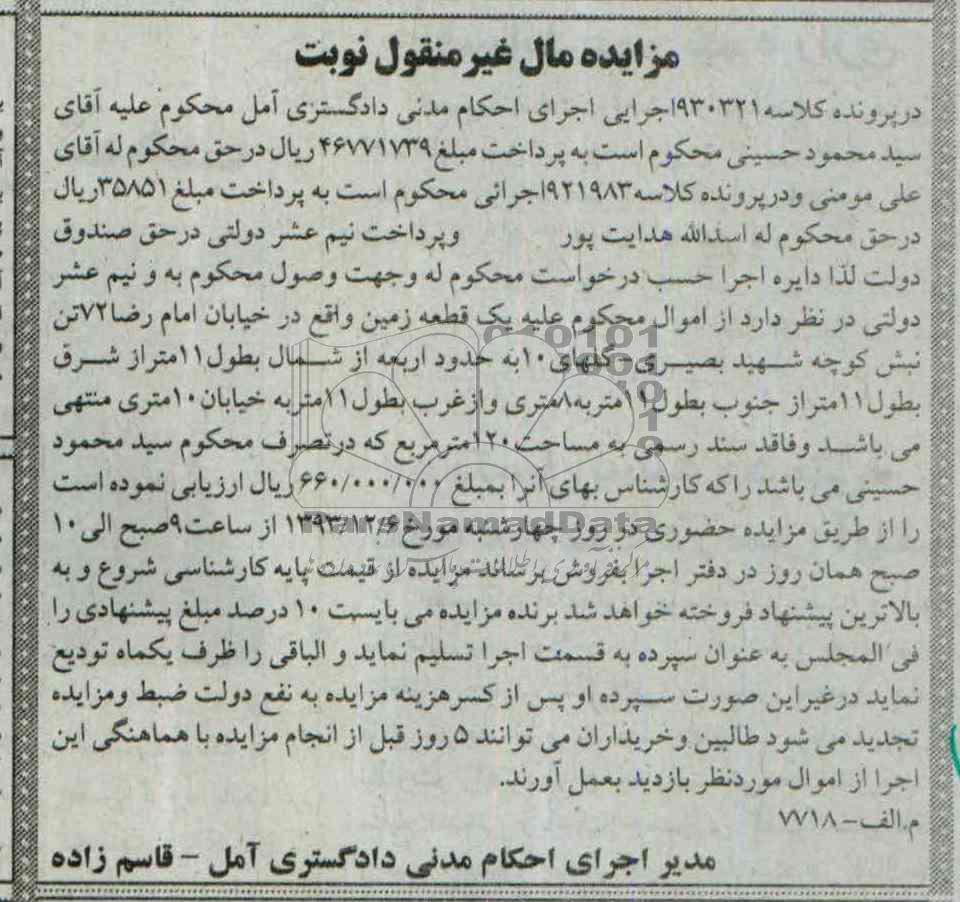 مزایده مال غیرمنقول نوبت
درپرونده کلاسه ۹۳۰۳۲۱اجرایی اجرای احکام مدنی دادگستری آمل محکوم علیه آقای
سید محمود حسینی محکوم است به پرداخت مبلغ ۴۶۷۷۱۷۳۹ ریال درحق محکوم له آقای
علی مومنی ودرپرونده کلاسه ۹۲۱۹۸۳اجرائی محکوم است به پرداخت مبلغ ۳۵۸۵۱ریال
درحق محکوم له اسدالله هدایت پور وپرداخت نیم عشر دولتی درحق صندوق
دولت لذا دایره اجرا حسب درخواست محکوم له وجهت وصول محکوم به و نیم عشر
دولتی در نظر دارد از اموال محکوم علیه یک قطعه زمین واقع در خیابان امام رضا۷۲تن
نبش کوچه شهید بصیری-گلهای ۱۰به حدود اربعه از شمال بطول۱۱متراز شرق
بطول۱۱متراز جنوب بطول۱۱متربه۸متری وازغرب بطول۱۱متربه خیابان۱۰متری منتهی
می باشد وفاقد سند رسمی به مساحت۱۲۰مترمربع که درتصرف محکوم سید محمود
حسینی می باشد راکه کارشناس بهای آنرا بمبلغ ۶۶۰/۰۰۰/۰۰۰ ریال ارزیابی نموده است
را از طریق مزایده حضوری در روز چهارشنبه مورخ ۱۳۹۳/۱۲/۶ از ساعت۹صبح الی۱۰
صبح همان روز در دفتر اجرا بفروش برساند مزایده از قیمت پایه کارشناسی شروع و به
بالاترین پیشنهاد فروخته خواهد شد برنده مزایده می بایست ۱۰ درصد مبلغ پیشنهادی را
فی المجلس به عنوان سپرده به قسمت اجرا تسلیم نماید و الباقی را ظرف یکماه تودیع
نماید درغیراین صورت سپرده او پس از کسرهزینه مزایده به نفع دولت ضبط ومزایده
تجدید می شود طالبین وخریداران می توانند ۵ روز قبل از انجام مزایده با هماهنگی این
اجرا از اموال موردنظر بازدید بعمل آورند.
م.الف-۷۷۱۸
مدیر اجرای احکام مدنی دادگستری آمل - قاسم زاده
AriaNamadData